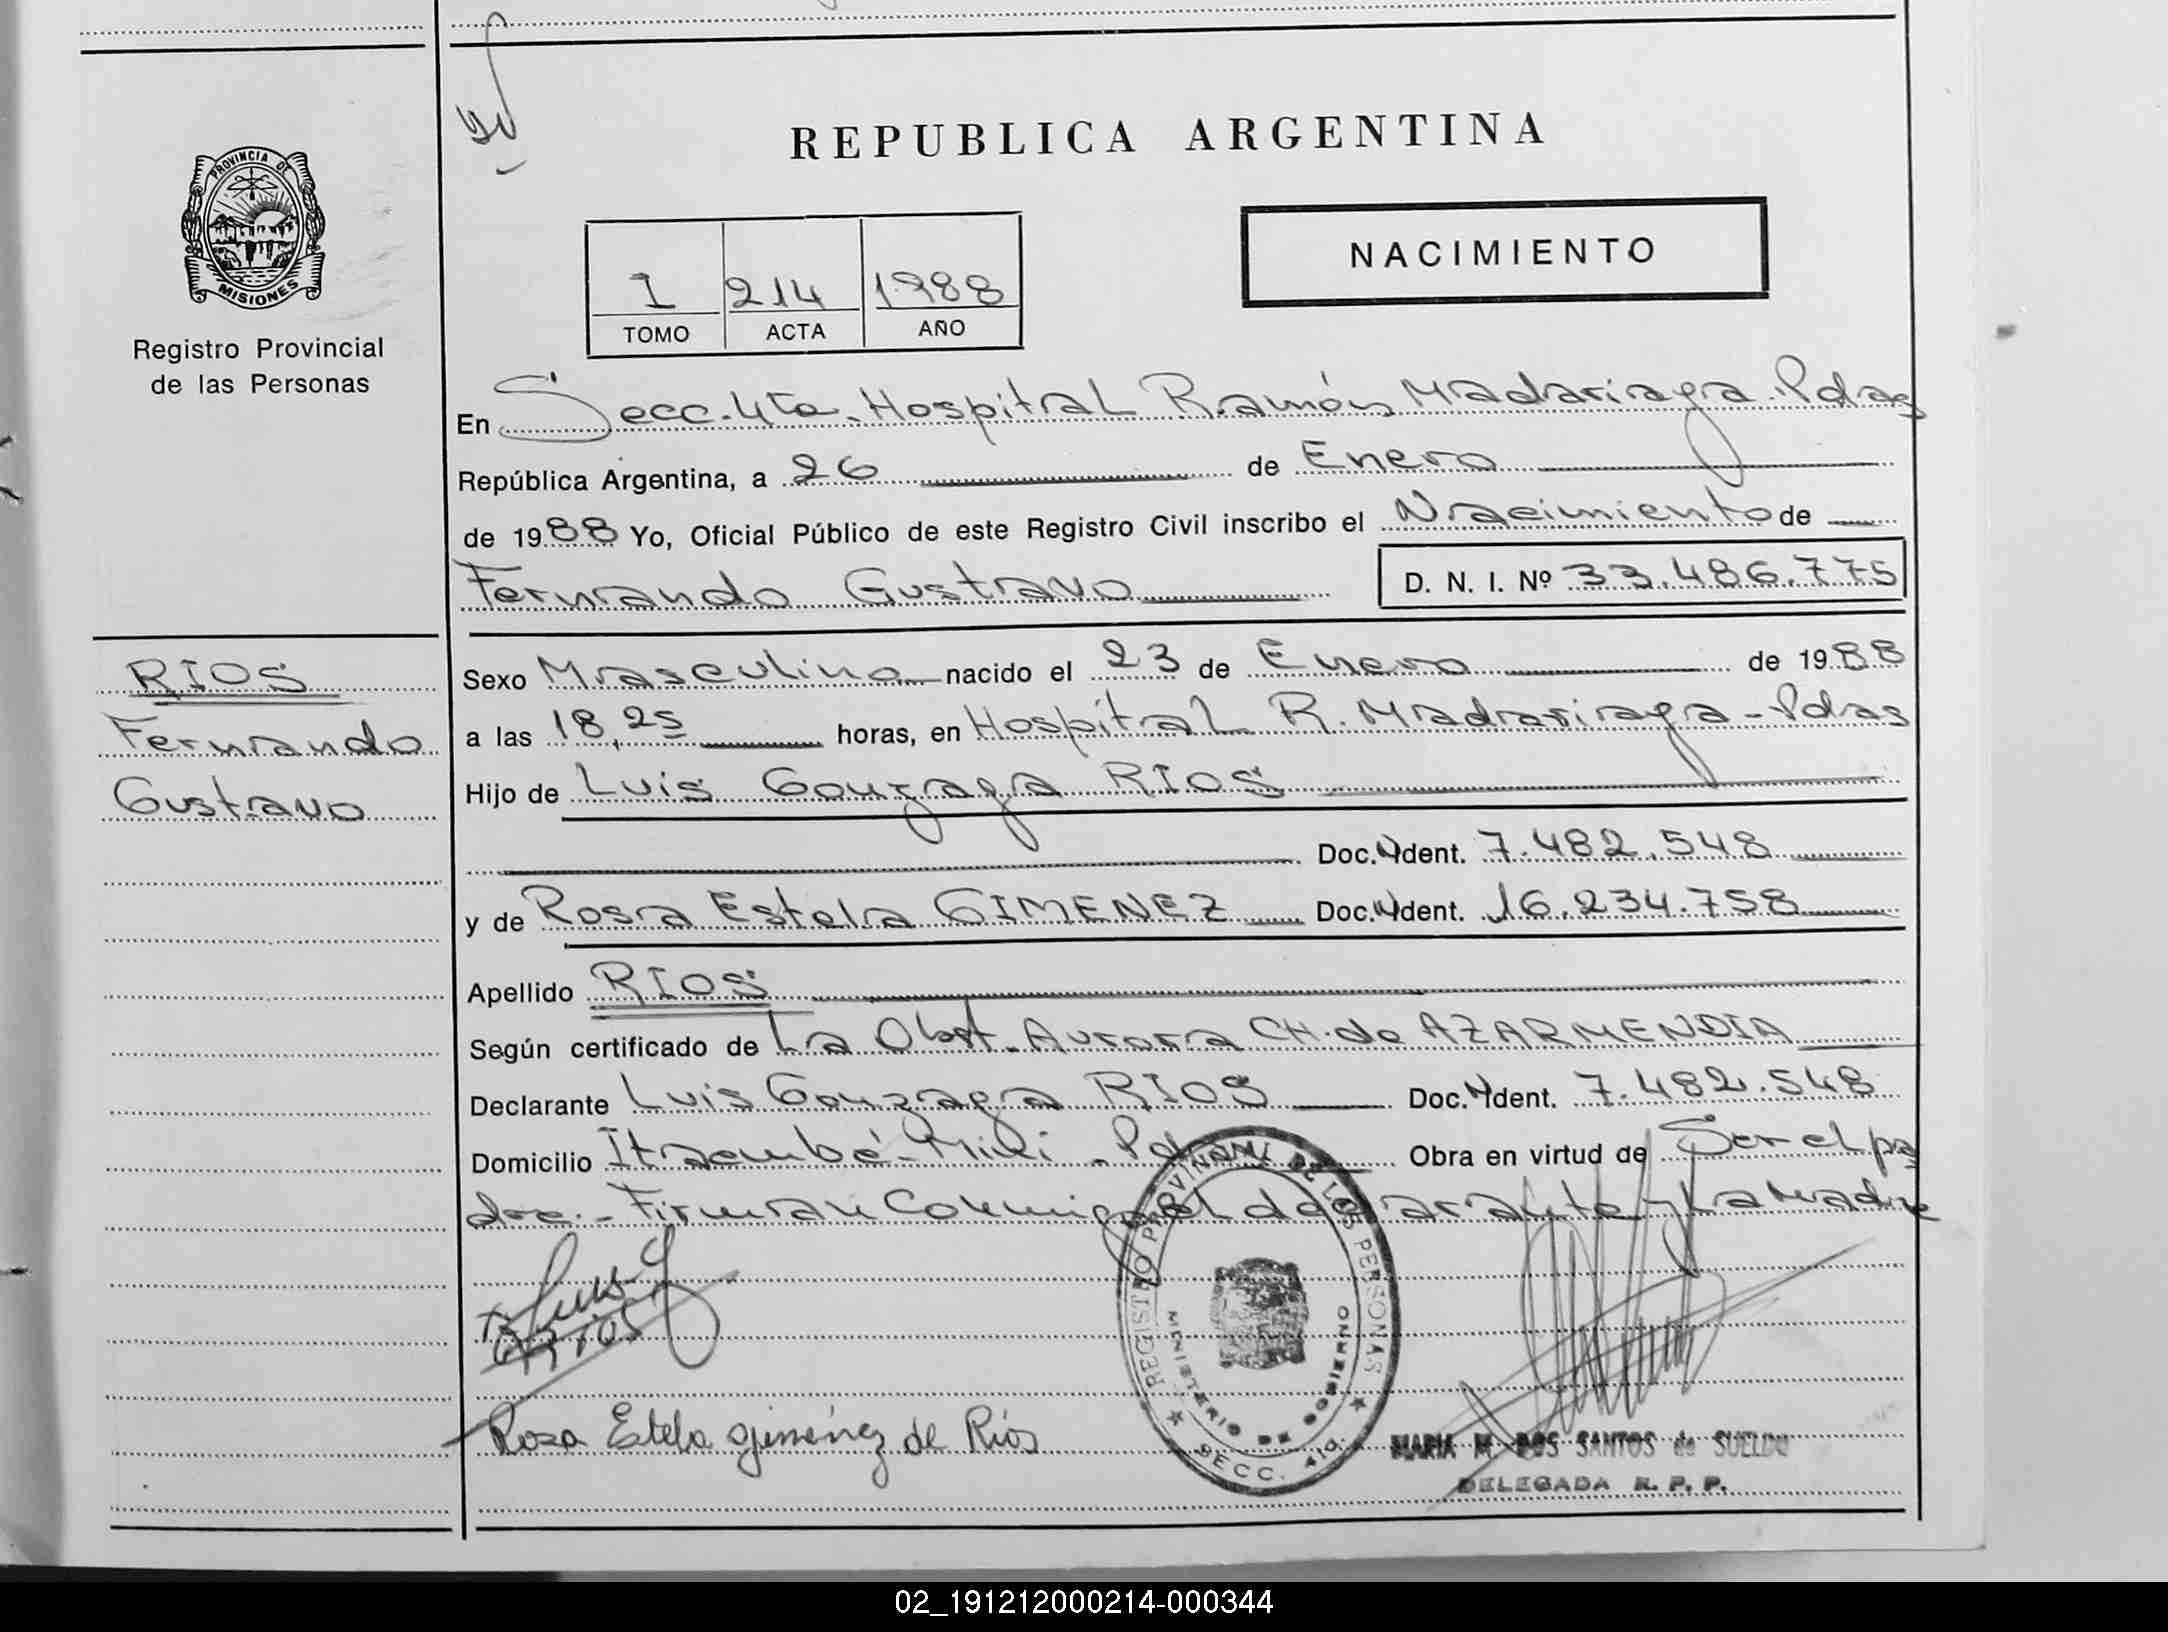 REPUBLICA ARGENTINA
PROVINCIA DE
MISIONES
Registro Provincial
de las Personas
NACIMIENTO
1 214 1988
TOMO ACTA AÑO
En Secc. 4ta. Hospital Ramón Madariaga. Pdas
República Argentina, a 26 de Enero
de 1988 Yo, Oficial Público de este Registro Civil inscribo el Nacimiento de
Fernando Gustavo D. N. I. Nº 33.486.775
RIOS
Fernando
Gustavo
Sexo Masculino nacido el 23 de Enero de 1988
a las 18,25 horas, en Hospital R. Madariaga - Pdas
Hijo de Luis Gonzaga RIOS
Doc. Ident. 7.482.548
y de Rosa Estela GIMENEZ Doc. Ident. 16.234.758
Apellido RIOS
Según certificado de La Obst. Aurora CH. de AZARMENDIA
Declarante Luis Gonzaga RIOS Doc. Ident. 7.482.548
Domicilio Itaembé-Miní - Obra en virtud de Ser el pa
dre.- Firman Conmigo el declarante y La Madre
Luis G
Rios
Rosa Estela Giménez de Ríos
REGISTRO PROVINCIAL DE LAS PERSONAS
MINISTERIO DE GOBIERNO
SECC. 4ta.
MARIA M. DOS SANTOS de SUELDO
DELEGADA R. P. P.
02_191212000214-000344